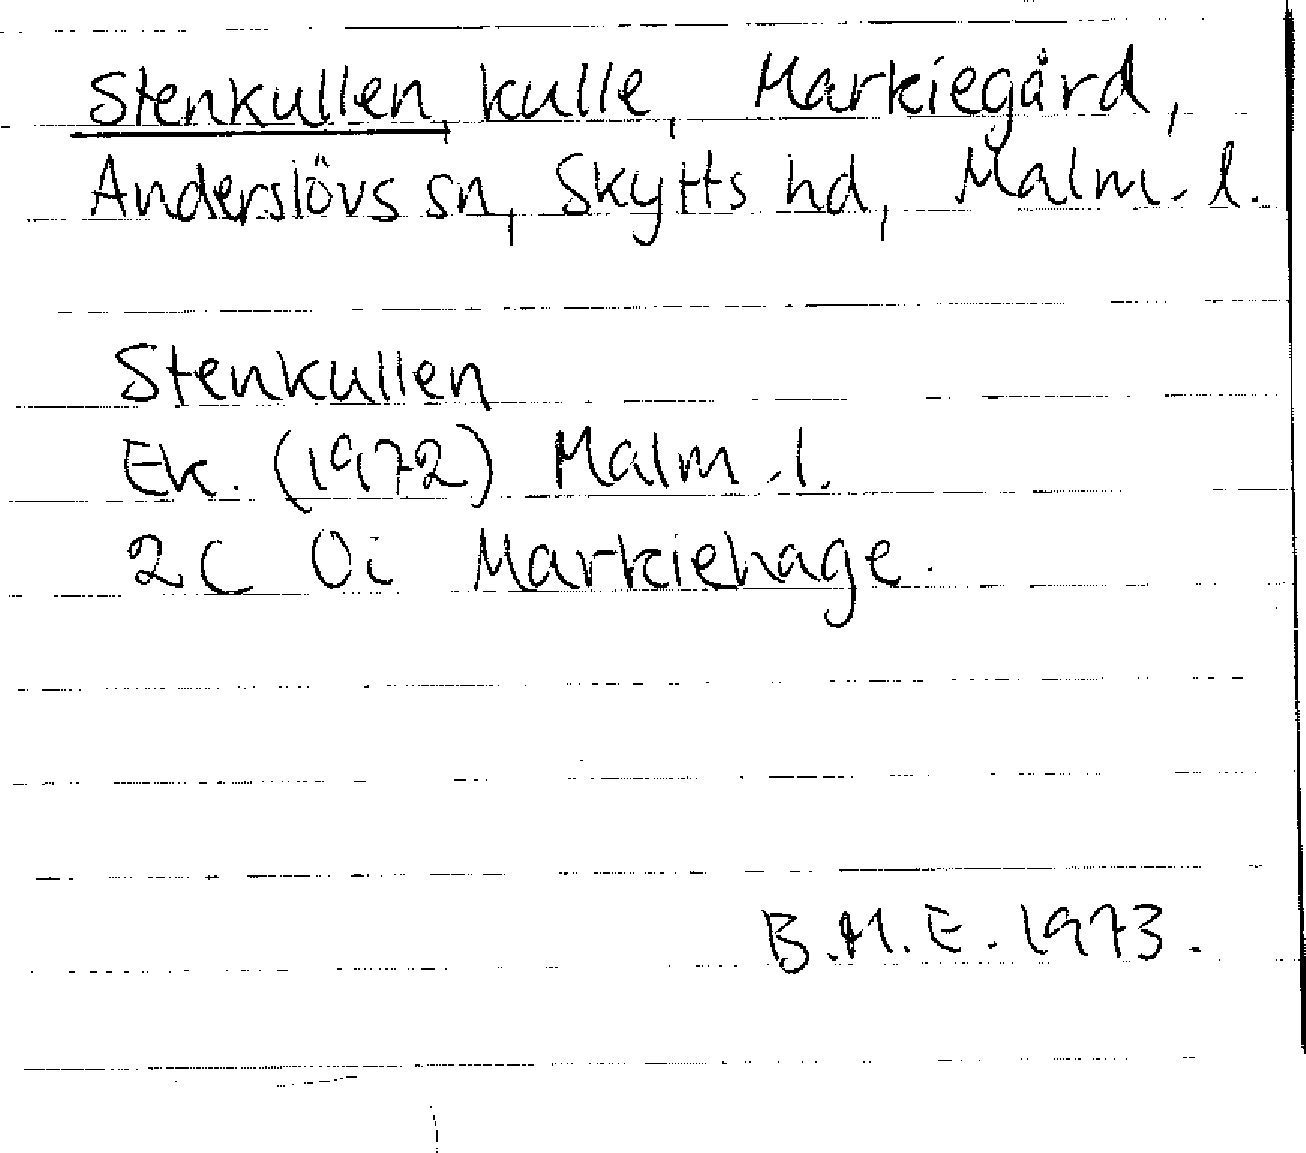 Stenkullen, kulle, Markiegård,
Anderslövs sn, Skytts hd, Malm. l.
Stenkullen
Ek. (1972) Malm. l.
2C 0i Markiehage.
B.M.E. 1973.